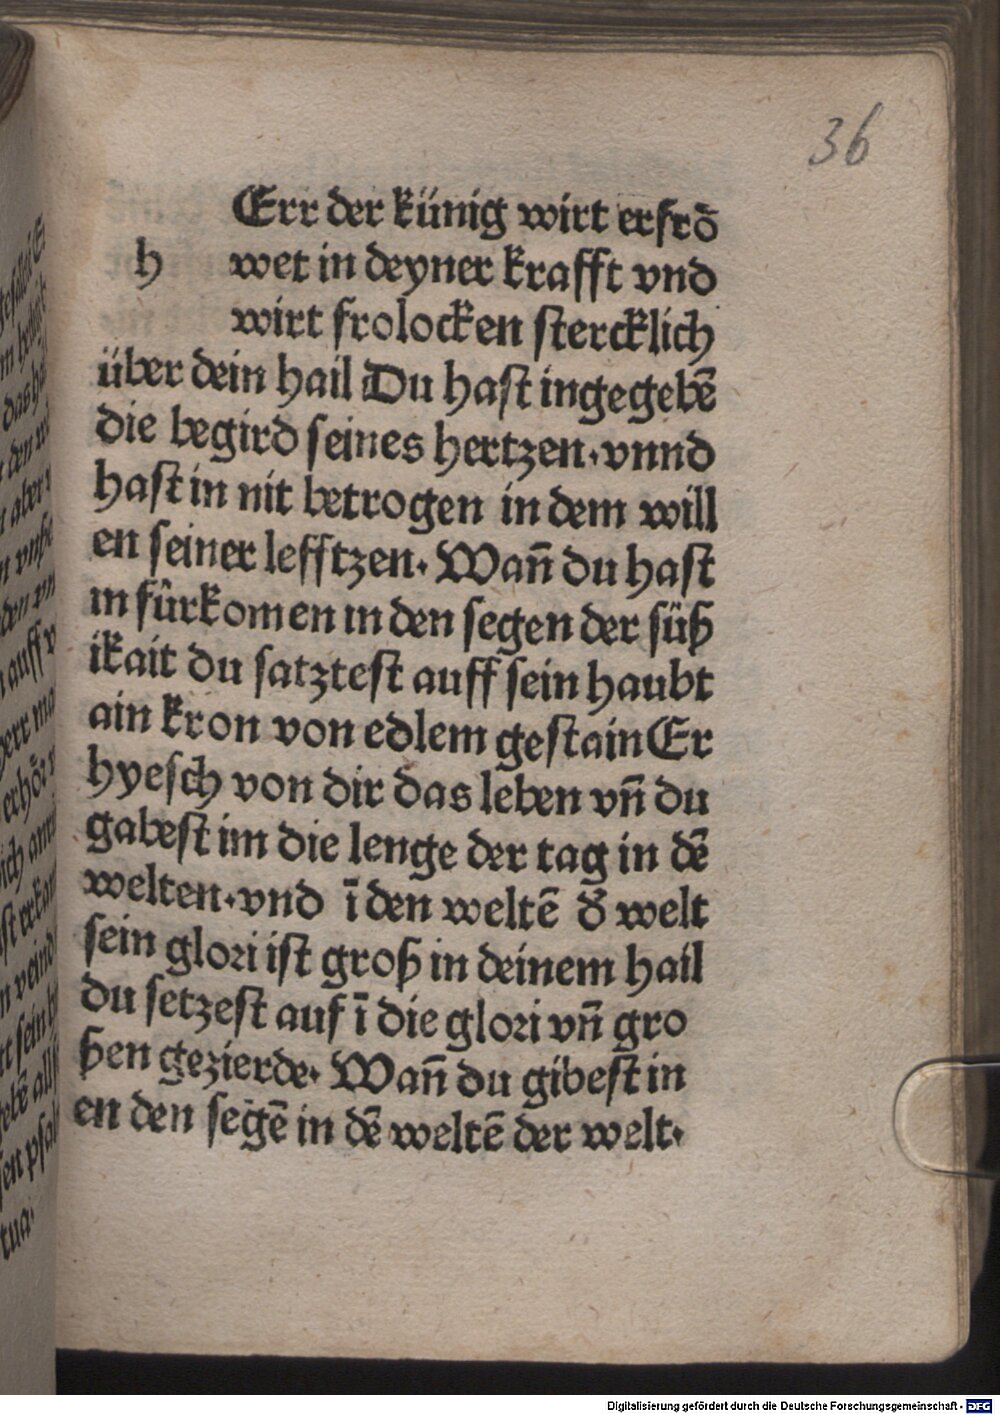 36
Err der künig wirt erfrö
h wet in deyner krafft vnd
wirt frolocken stercklich
über dein hail Du hast ingegebē
die begird seines hertzen. vnnd
hast in nit betrogen in dem will
en seiner lefftzen. Wañ du hast
in fürkomen in den segen der süß
ikait du satztest auff sein haubt
ain kron von edlem gestain Er
hyesch von dir das leben vñ du
gabest im die lenge der tag in dē
welten. vnd ī den weltē d̕ welt
sein glori ist groß in deinem hail
du setzest auf ī die glori vñ gro
ßen gezierde. Wañ du gibest in
en den segē in dē weltē der welt.
Digitalisierung gefördert durch die Deutsche Forschungsgemeinschaft - DFG